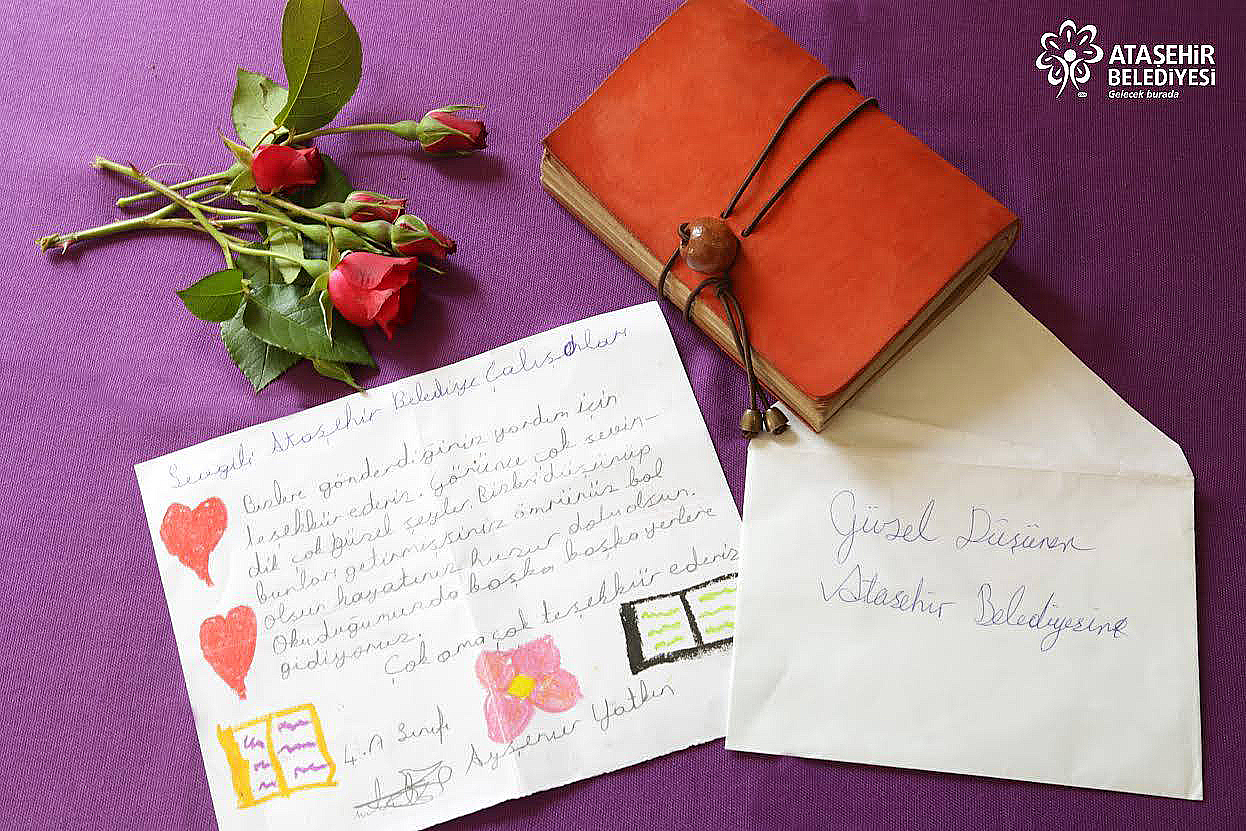 ATAŞEHİR
BELEDİYESİ
Gelecek burada
Sevgili Ataşehir Belediye Çalışanları
Bizlere gönderdiğiniz yardım için
teşekkür ederiz. Görünce çok sevin-
dik çok güzel şeyler. Bizleri düşünüp
bunları getirmişsiniz ömrünüz bol
olsun hayatınız huzur dolu olsun.
Okuduğumunda başka başka yerlere
gidiyoruz.
Çok ama çok teşekkür ederiz
4.A Sınıfı
Ayşenur Yatkın
Güzel Düşünen
Ataşehir Belediyesine